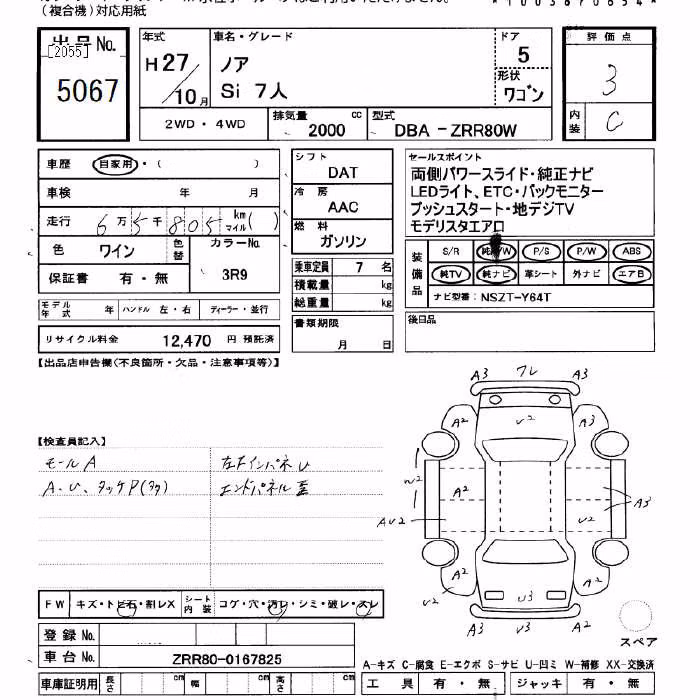 (複合機)対応用紙
出品No.
[2055]
5067
年式
H27/10月
車名・グレード
ノア
Si 7人
ドア
5
形状
ワゴン
評価点
3
内装
C
2WD・4WD
排気量
2000 cc
型式
DBA-ZRR80W
車歴 自家用・( )
車検 年 月
走行 6万5千805 km マイル( )
色 ワイン 色替
カラーNo.
3R9
保証書 有・無
モデル年式 年 ハンドル 左・右 ディーラー・並行
リサイクル料金 12,470 円 預託済
シフト
DAT
冷房
AAC
燃料
ガソリン
乗車定員 7 名
積載量 kg
総重量 kg
書類期限
月 日
セールスポイント
両側パワースライド・純正ナビ
LEDライト、ETC・バックモニター
プッシュスタート・地デジTV
モデリスタエアロ
装備品
S/R 純A/W P/S P/W ABS
純TV 純ナビ 革シート 外ナビ エアB
ナビ型番: NSZT-Y64T
後日品
【出品店申告欄(不良箇所・欠品・注意事項等)】
【検査員記入】
モールA
A.U、タッチP(多)
左下インパネU
エンドパネル歪
A3 フレ A3
A2 U2 A3
W2 A2
AU2 U2 A3
A2 A2
U2 U3
A3 U3 A3
スペア
FW キズ・トビ石・割レX シート内装 コゲ・穴・汚レ・シミ・破レ・スレ
登録No.
車台No. ZRR80-0167825
車庫証明用 長さ cm 幅 cm 高さ cm
A-キズ C-腐食 E-エクボ S-サビ U-凹ミ W-補修 XX-交換済
工具 有・無 ジャッキ 有・無